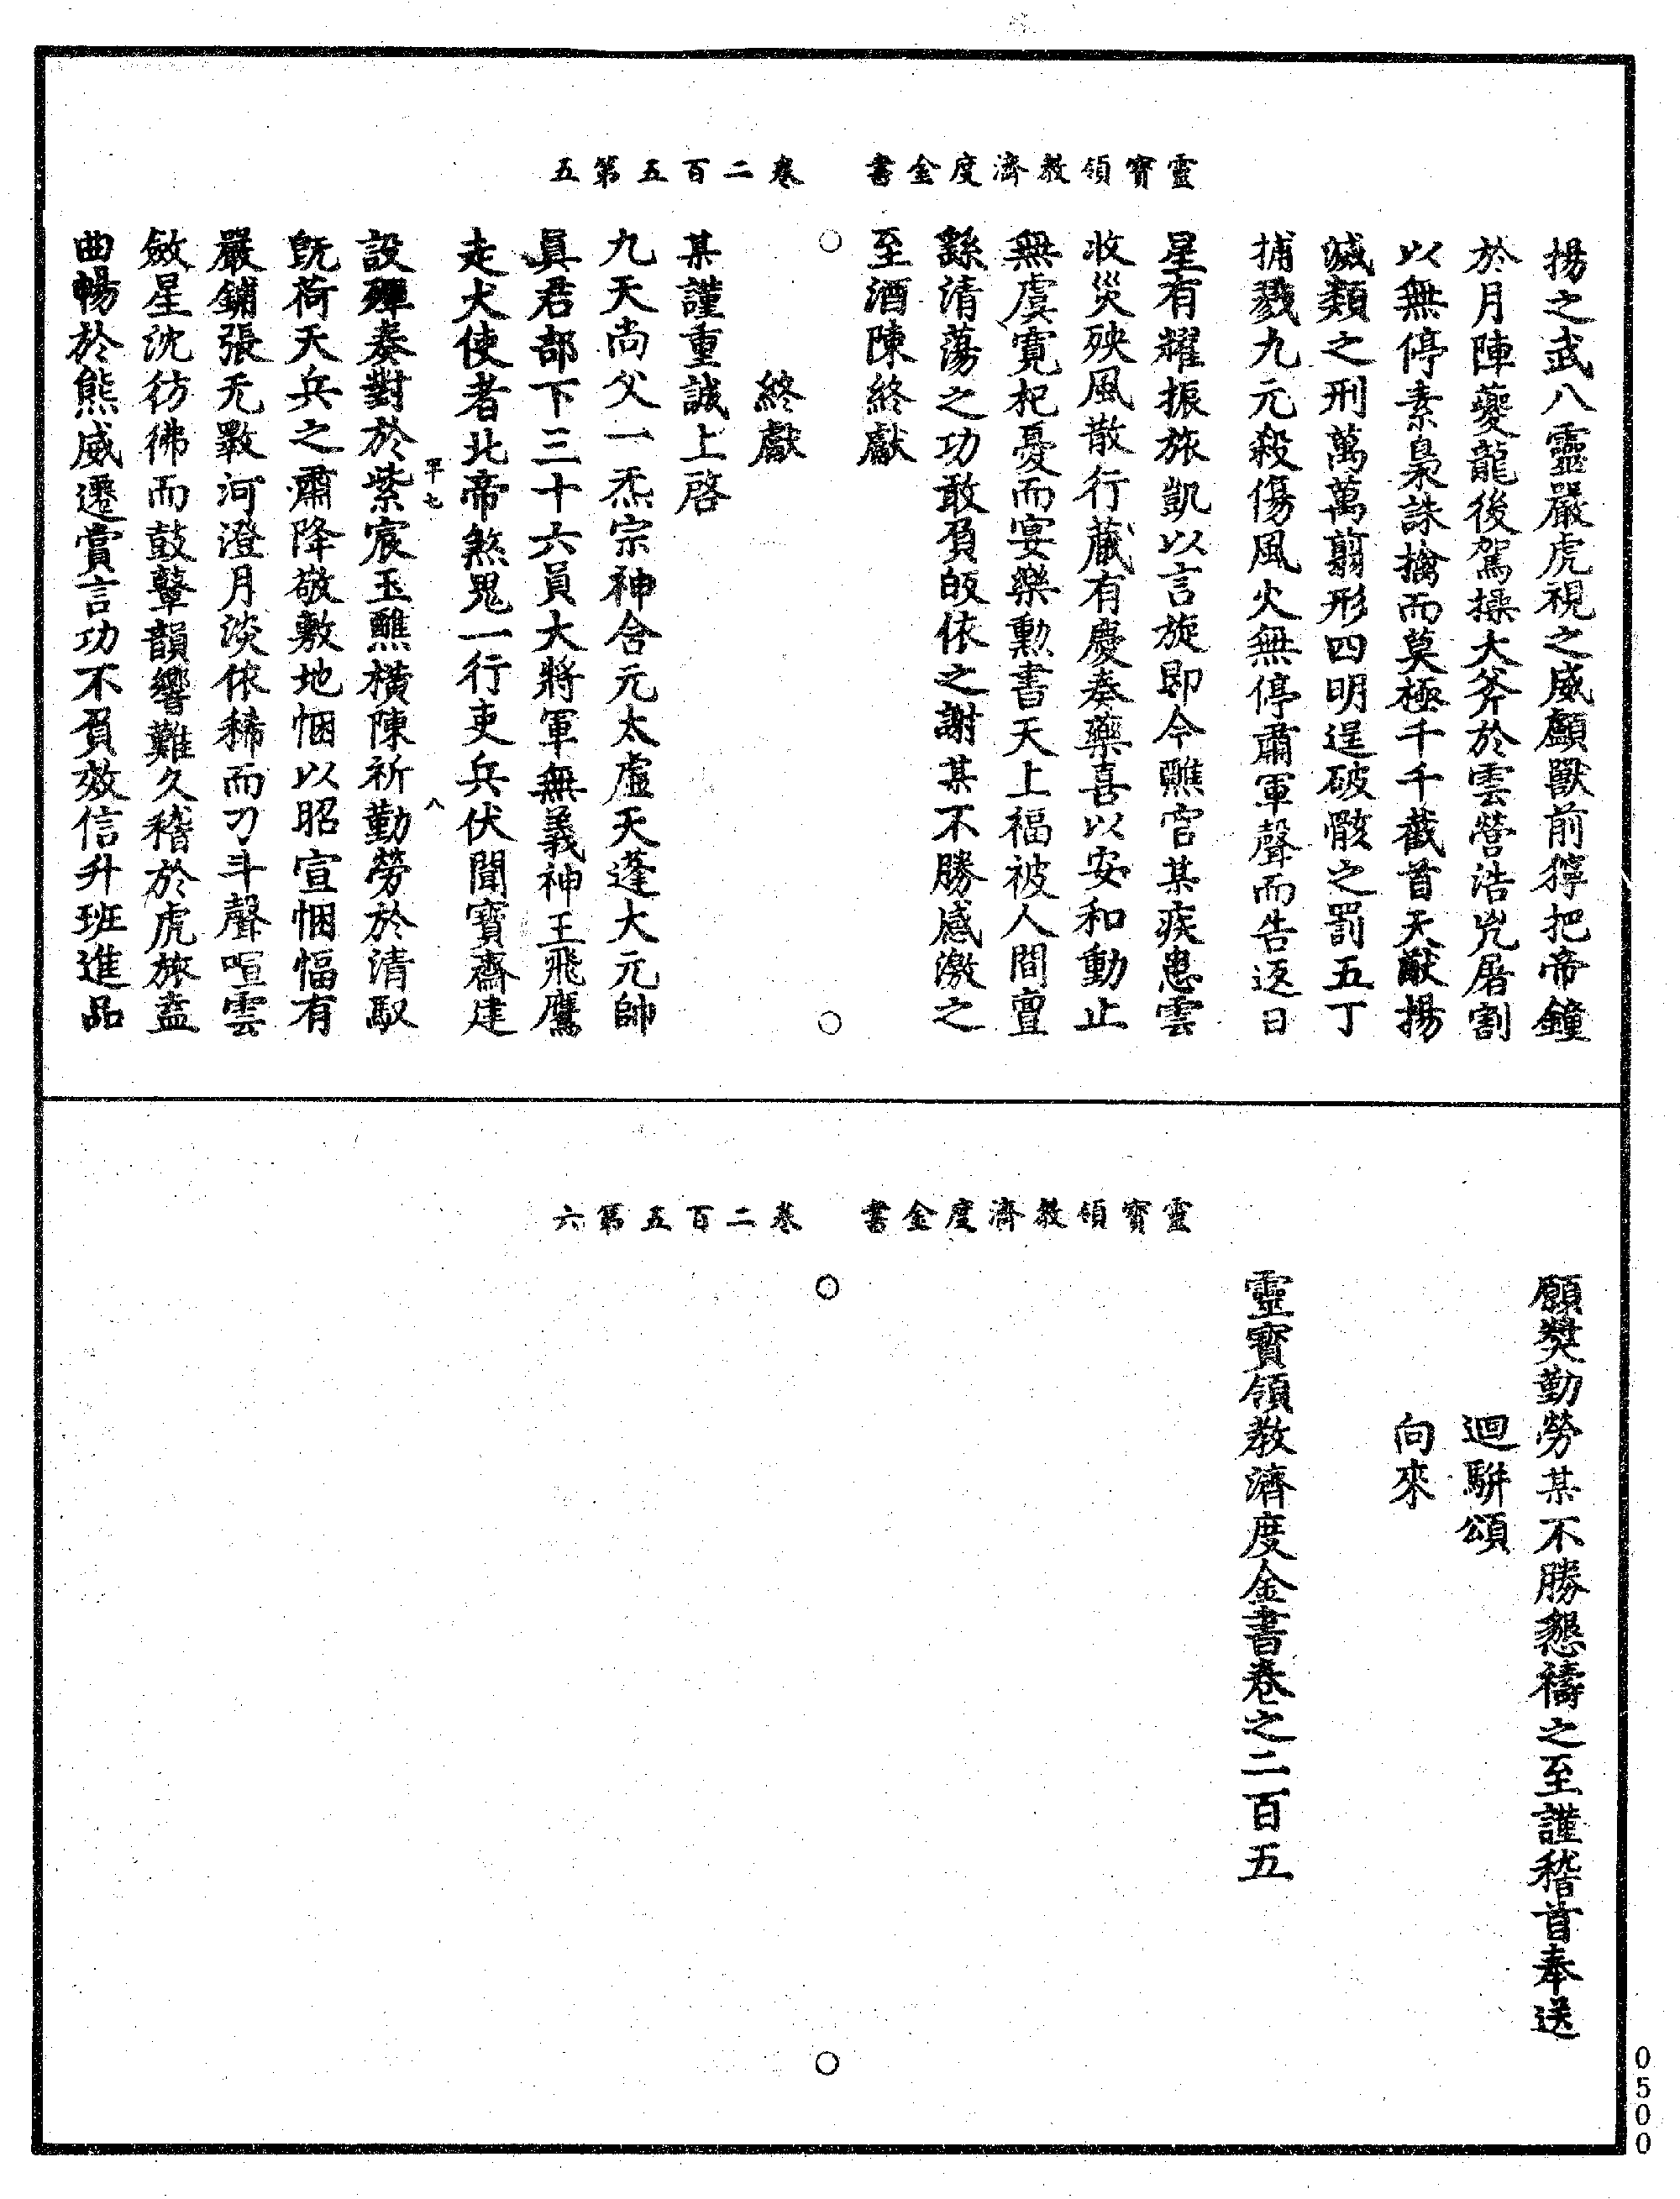 靈寶領教濟度金書　卷二百五第五
揚之武八靈嚴虎視之威顱獸前獰把帝鐘
於月陣夔龍後駕操大斧於雲營浩兇屠割
以無停素梟誅擒而莫極千千截首天猷揚
滅類之刑萬萬翦形四明逞破骸之罰五丁
捕戮九元殺傷風火無停肅軍聲而告返日
星有耀振旅凱以言旋即今醮官某疾患雲
收災殃風散行藏有慶奏藥喜以安和動止
無虞寬杞憂而宴樂勳書天上福被人間亶
繇清蕩之功敢負皈依之謝某不勝感激之
至酒陳終獻
終獻
某謹重誠上啓
九天尚父一炁宗神合元太虛天蓬大元帥
眞君部下三十六員大將軍無義神王飛鷹
走犬使者北帝煞鬼一行吏兵伏聞寶齋建
設殫奏對於紫宸玉醮橫陳祈勤勞於清馭
旣荷天兵之肅降敬敷地悃以昭宣悃愊有
嚴鋪張无斁河澄月淡依稀而刁斗聲喧雲
斂星沈彷彿而鼓鼙韻響難久稽於虎旅盍
曲暢於熊威遷賞言功不負效信升班進品
平七　八
靈寶領教濟度金書　卷二百五第六
願獎勤勞某不勝懇禱之至謹稽首奉送
迴駢頌
向來
靈寶領教濟度金書卷之二百五
0500